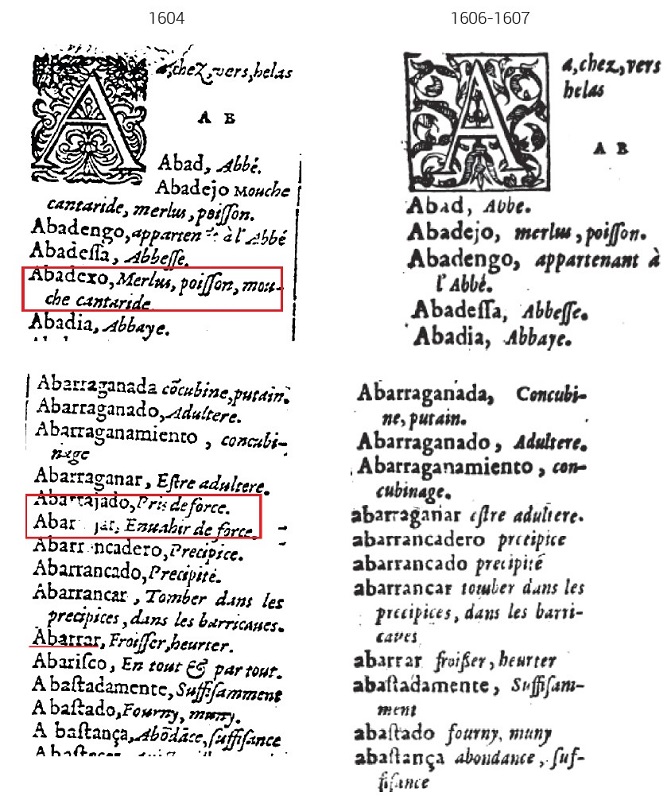 1604
a, chez, vers, helas
A B
Abad, Abbé.
Abadejo Mouche
cantaride, merlus, poiſſon.
Abadengo, apparten à l'Abbé
Abadeſſa, Abbeſſe.
Abadexo, Merlus, poiſſon, mou-
che cantaride
Abadia, Abbaye.
Abarraganada cõcubine, putain.
Abarraganado, Adultere.
Abarraganamiento, concubi-
nage
Abarraganar, Eſtre adultere.
Abarrajado, Pris de force.
Abar jar, Enuahir de force.
Abarr ncadero, Precipice.
Abarrancado, Precipité.
Abarrancar, Tomber dans les
precipices, dans les barricaues.
Abarrar, Froiſſer, heurter.
Abariſco, En tout & par tout.
Abaſtadamente, Suffiſamment
Abaſtado, Fourny, muny.
A baſtança, Abõdãce, ſuffiſance
1606-1607
A
a, chez, vers
helas
A B
Abad, Abbe.
Abadejo, merlus, poiſſon.
Abadengo, appartenant à
l'Abbé.
Abadeſſa, Abbeſſe.
Abadia, Abbaye.
Abarraganada, Concubi-
ne, putain.
Abarraganado, Adultere.
Abarraganamiento, con-
cubinage.
abarraganar eſtre adultere.
abarrancadero precipice
abarrancado precipité
abarrancar tomber dans les
precipices, dans les barri-
caues
abarrar froiſſer, heurter
abaſtadamente, Suffiſam-
ment
abaſtado fourny, muny
abaſtança abondance, ſuf-
fiſance